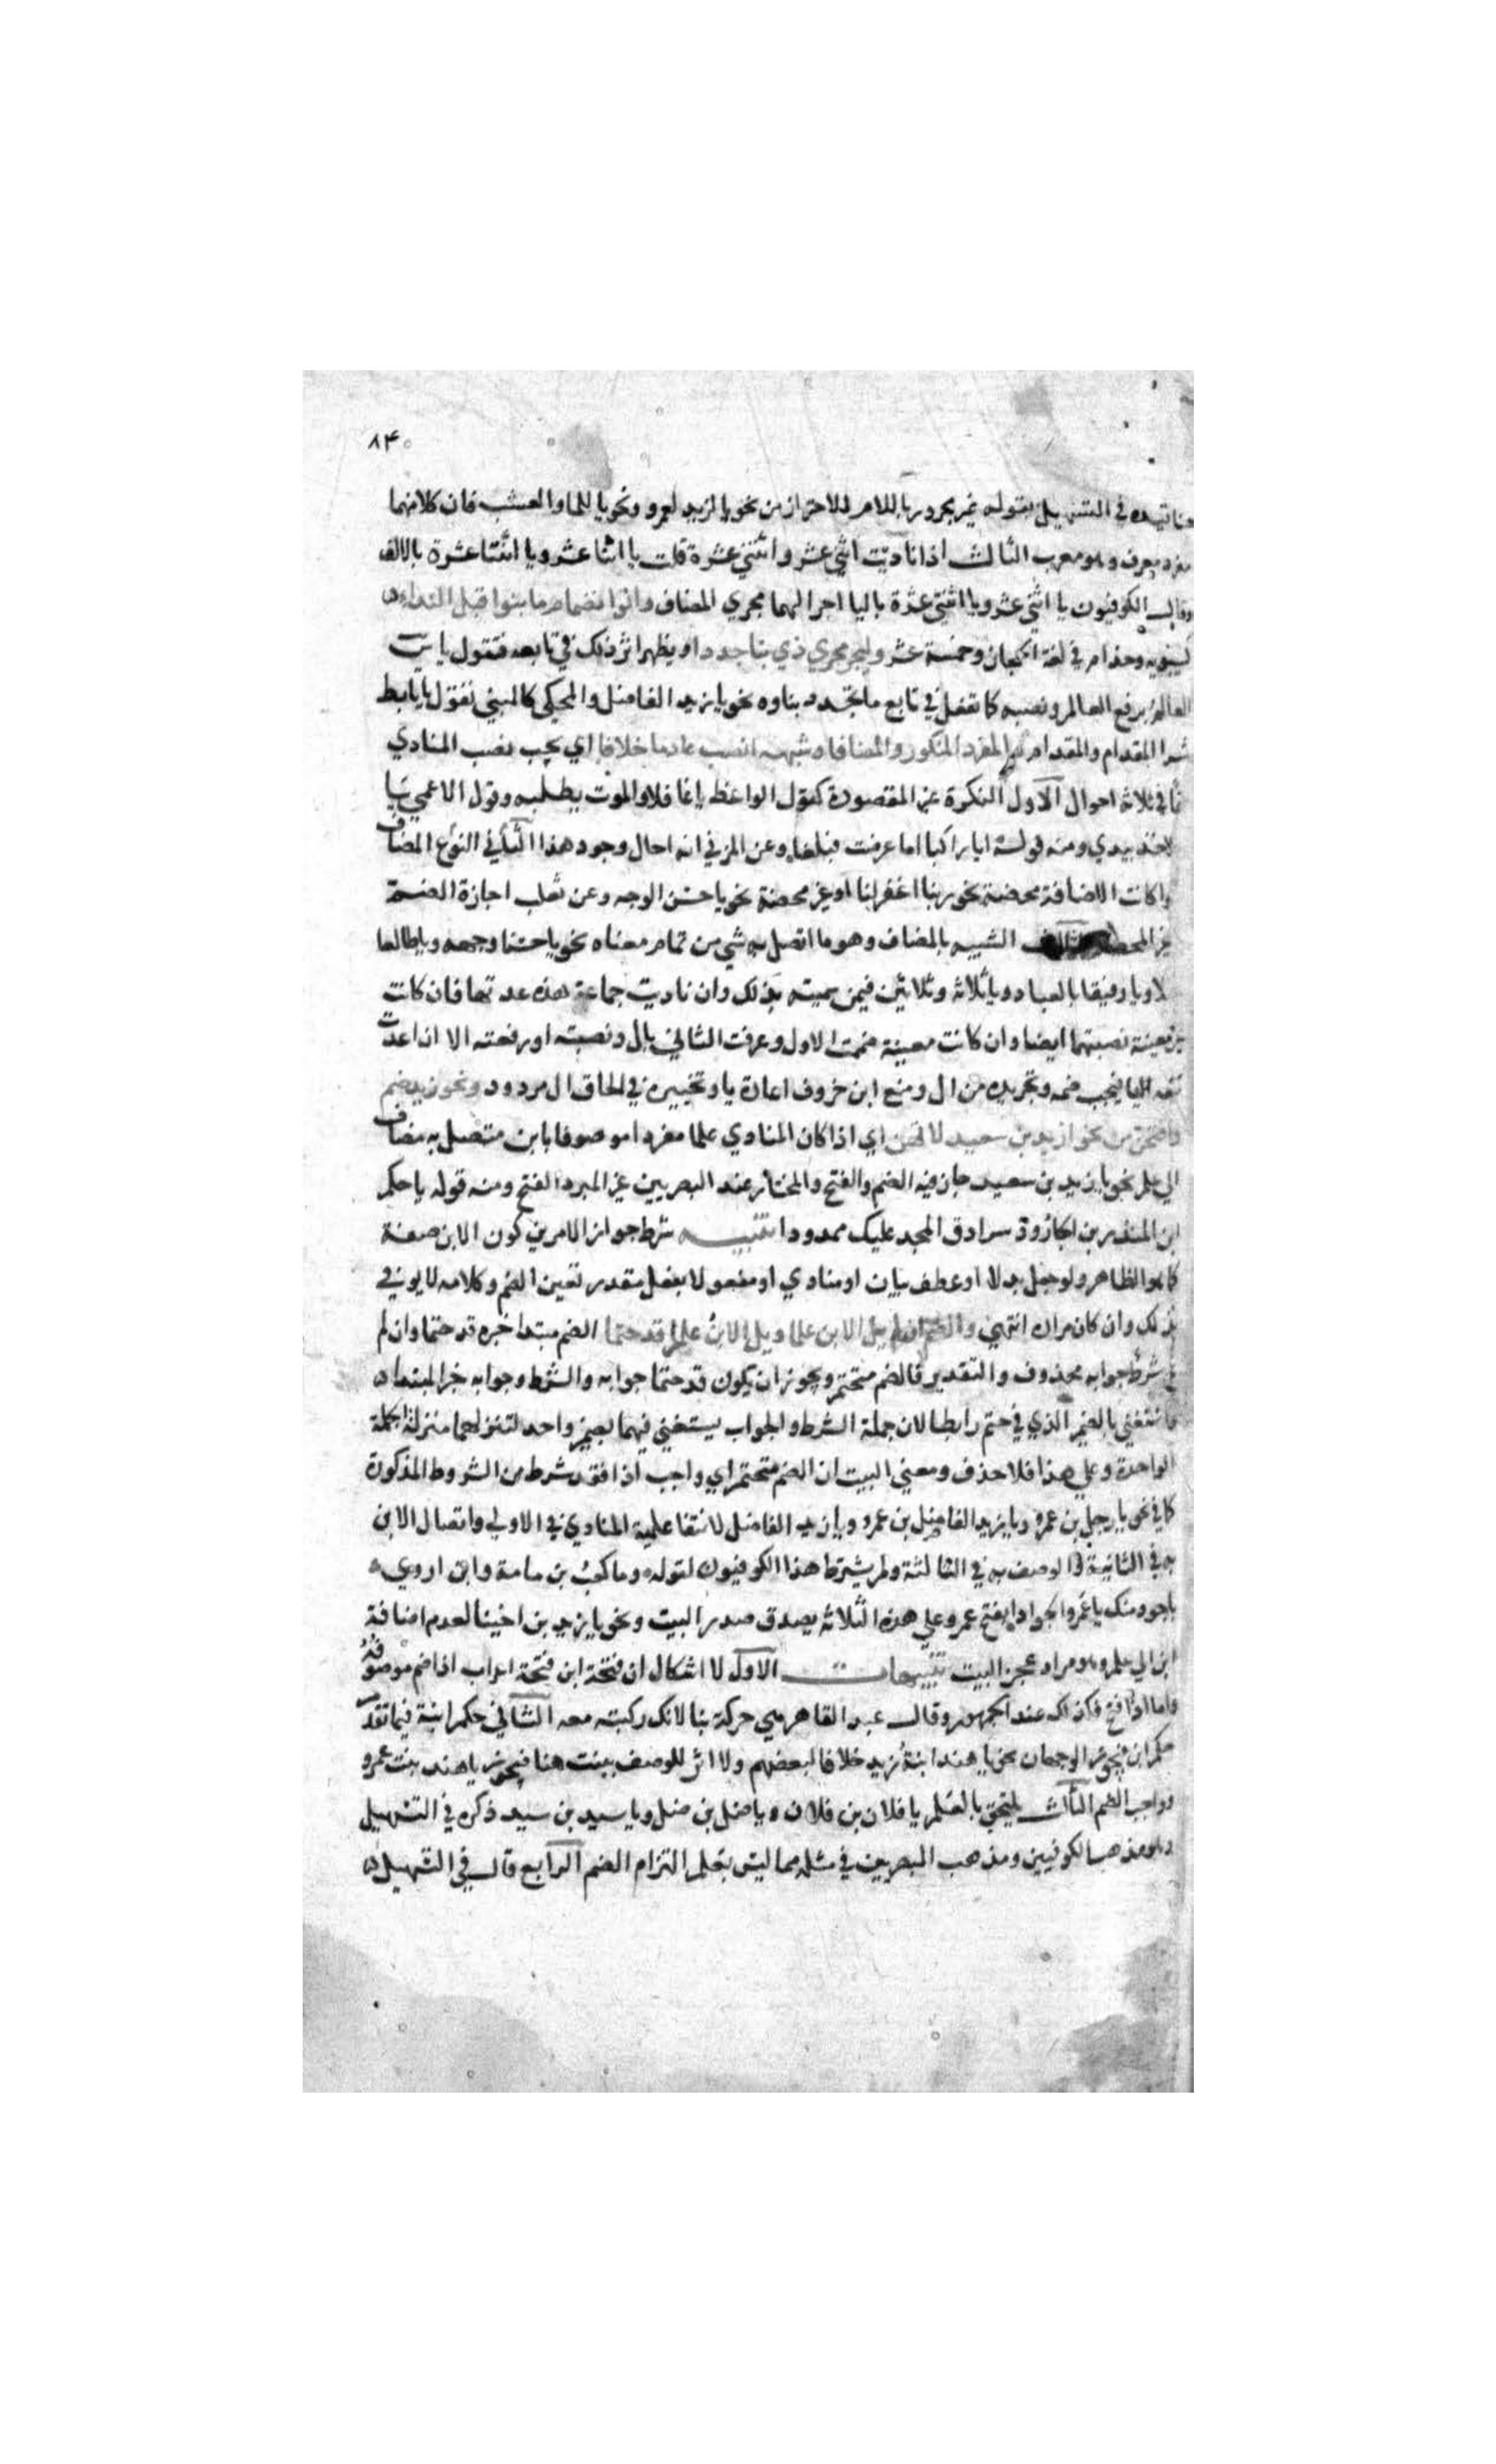 ٨٣
قيده في التسهيل بقوله غير مجرور باللام للاحتراز من نحو يا لزيد لعمرو ونحو يا للماء والعشب فان كلا منهما
مفرد معرف وهو معرب الثالث اذا ناديت اثني عشر واثنتي عشرة قلت يا اثنا عشر ويا اثنتا عشرة بالالف
وقال الكوفيون يا اثني عشر ويا اثنتي عشرة باليا اجرا لهما مجري المضاف وانوا نضمام ما بنوا قبل النداء
كسيبويه وحذام في لغة الحجاز وخمسة عشر وليجر مجري ذي بنا جددا ويظهر اثر ذلك في تابعه فتقول يا سيبويه
العالم برفع العالم ونصبه كما تفعل في تابع ما تجدد بناوه نحو يا زيد الفاضل والمحكي كالمبني تقول يا تابط
شرا المقدام والمقدام والمفرد المنكور والمضافا وشبهه انصب عادما خلافا اي يجب نصب المنادي
في ثلاثة احوال الاول النكرة غير المقصودة كقول الواعظ يا غافلا والموت يطلبه وقول الاعمي يا
خذ بيدي ومنه قوله ايا راكبا اما عرضت فبلغا وعن المازني انه احال وجود هذا الثاني النوع المضاف
كانت الاضافة محضة نحو ربنا اغفر لنا او غير محضة نحو يا حسن الوجه وعن ثعلب اجازة الضم
غير المحضة الثالث الشبيه بالمضاف وهو ما اتصل به شي من تمام معناه نحو يا حسنا وجهه ويا طالعا
ويا رفيقا بالعباد ويا ثلاثة وثلاثين فيمن سميته بذلك وان ناديت جماعة هذه عدتها فان كانت
غير معينة نصبتهما ايضا وان كانت معينة ضممت الاول وعرفت الثاني بال ونصبته او رفعته الا ان اعدت
معه يا فيجب ضمه وتجريده من ال ومنع ابن خروف اعادة يا وتخييره في الحاق ال مردود ونحو زيد ضم
وافتحن من نحو ازيد بن سعيد لا تهن اي اذا كان المنادي علما مفردا موصوفا بابن متصل به مضاف
الي علم نحو يا زيد بن سعيد جاز فيه الضم والفتح والمختار عند البصريين غير المبرد الفتح ومنه قوله يا حكم
ابن المنذر بن الجارود سرادق المجد عليك ممدود تنبيه شرط جواز الامرين كون الابن صفة
كما هو الظاهر ولو جعل بدلا او عطف بيان او منادي او مفعولا بفعل مقدر تعين الضم وكلامه لا يوفي
بذلك وان كان مراده انتهي والضم ان لم يل الابن علما ويل الابن علم قد حتما الضم مبتدا خبره قد حتما وان لم
شرط جوابه محذوف والتقدير فالضم متحتم ويجوز ان يكون قد حتما جوابه والشرط وجوابه خبر المبتدا
واستغني بالضمير الذي في حتم رابطا لان جملة الشرط والجواب يستغني فيهما بضمير واحد لتنزلهما منزلة الجملة
الواحدة وعلي هذا فلا حذف ومعني البيت ان الضم متحتم اي واجب اذا فقد شرط من الشروط المذكورة
كما في نحو يا رجل بن عمرو ويا زيد الفاضل بن عمرو ويا زيد الفاضل لانتفا علمية المنادي في الاولي واتصال الابن
به في الثانية والوصف به في الثالثة ولم يشترط هذا الكوفيون لقوله وما كعب بن مامة وابن اروي
باجود منك يا عمر الجوادا بفتح عمر وعلي هذه الثلاثة يصدق صدر البيت ونحو يا زيد بن اخينا لعدم اضافة
ابن الي علم وهو مراد عجز البيت تنبيهات الاول لا اشكال ان فتحة ابن فتحة اعراب اذا ضم موصوفه
واما اذا فتح فكذلك عند الجمهور وقال عبد القاهر هي حركة بنا لانك ركبته معه الثاني حكم ابنة فيما تقدم
حكم ابن فيجوز الوجهان نحو يا هند ابنة زيد خلافا لبعضهم ولا اثر للوصف ببنت هنا فنحو يا هند بنت عمرو
واجب الضم الثالث يلتحق بالعلم يا فلان بن فلان ويا ضل بن ضل ويا سيد بن سيد ذكره في التسهيل
وهو مذهب الكوفيين ومذهب البصريين في مثله مما ليس بعلم التزام الضم الرابع قال في التسهيل